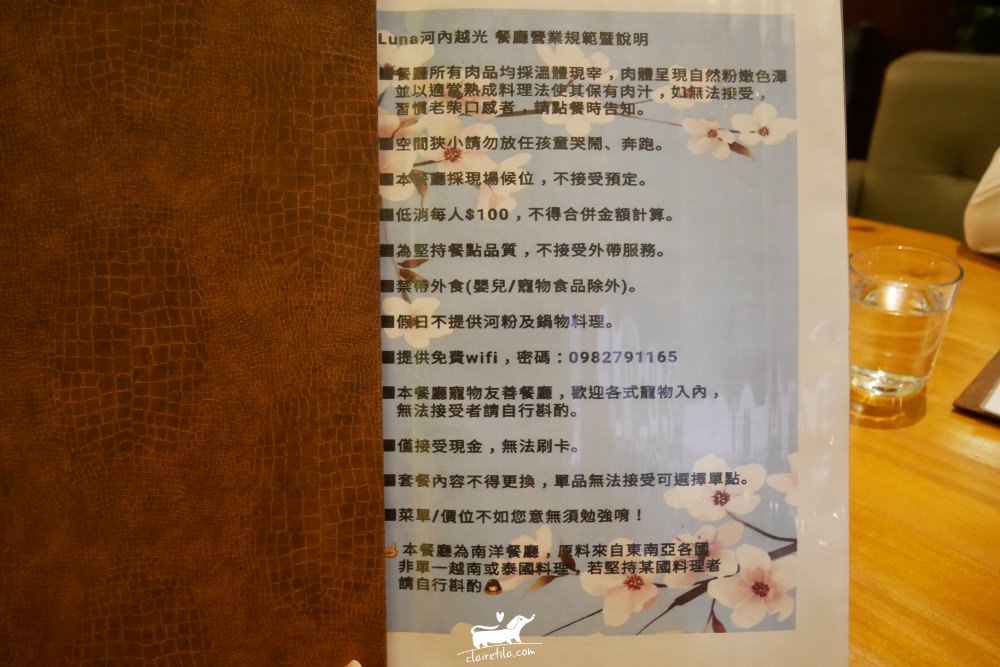 Luna河內越光 餐廳營業規範暨說明
■餐廳所有肉品均採溫體現宰，肉體呈現自然粉嫩色澤
並以適當熟成料理法使其保有肉汁，如無法接受，
習慣老柴口感者，請點餐時告知。
■空間狹小請勿放任孩童哭鬧、奔跑。
■本餐廳採現場候位，不接受預定。
■低消每人$100，不得合併金額計算。
■為堅持餐點品質，不接受外帶服務。
■禁帶外食(嬰兒/寵物食品除外)。
■假日不提供河粉及鍋物料理。
■提供免費wifi，密碼：0982791165
■本餐廳寵物友善餐廳，歡迎各式寵物入內，
無法接受者請自行斟酌。
■僅接受現金，無法刷卡。
■套餐內容不得更換，單品無法接受可選擇單點。
■菜單/價位不如您意無須勉強唷！
☝本餐廳為南洋餐廳，原料來自東南亞各國
非單一越南或泰國料理，若堅持某國料理者
請自行斟酌
clairetila.com